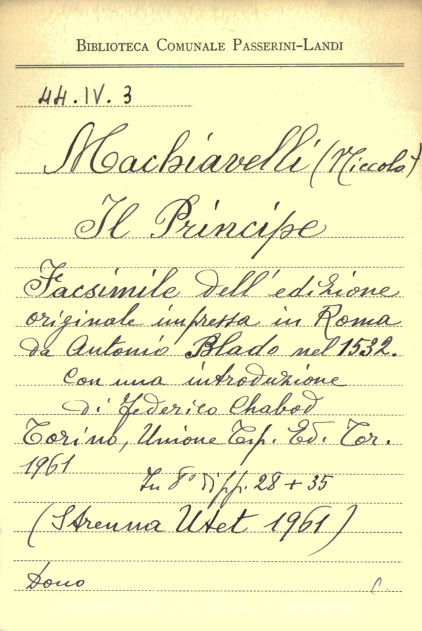 BIBLIOTECA COMUNALE PASSERINI-LANDI
44.IV.3
Machiavelli (Niccolò)
Il Principe
Facsimile dell'edizione
originale impressa in Roma
da Antonio Blado nel 1532.
Con una introduzione
di Federico Chabod
Torino, Unione Tip. Ed. Tor.
1961
In 8° di pp. 28 + 35
(Strenna Utet 1961)
Dono
C.